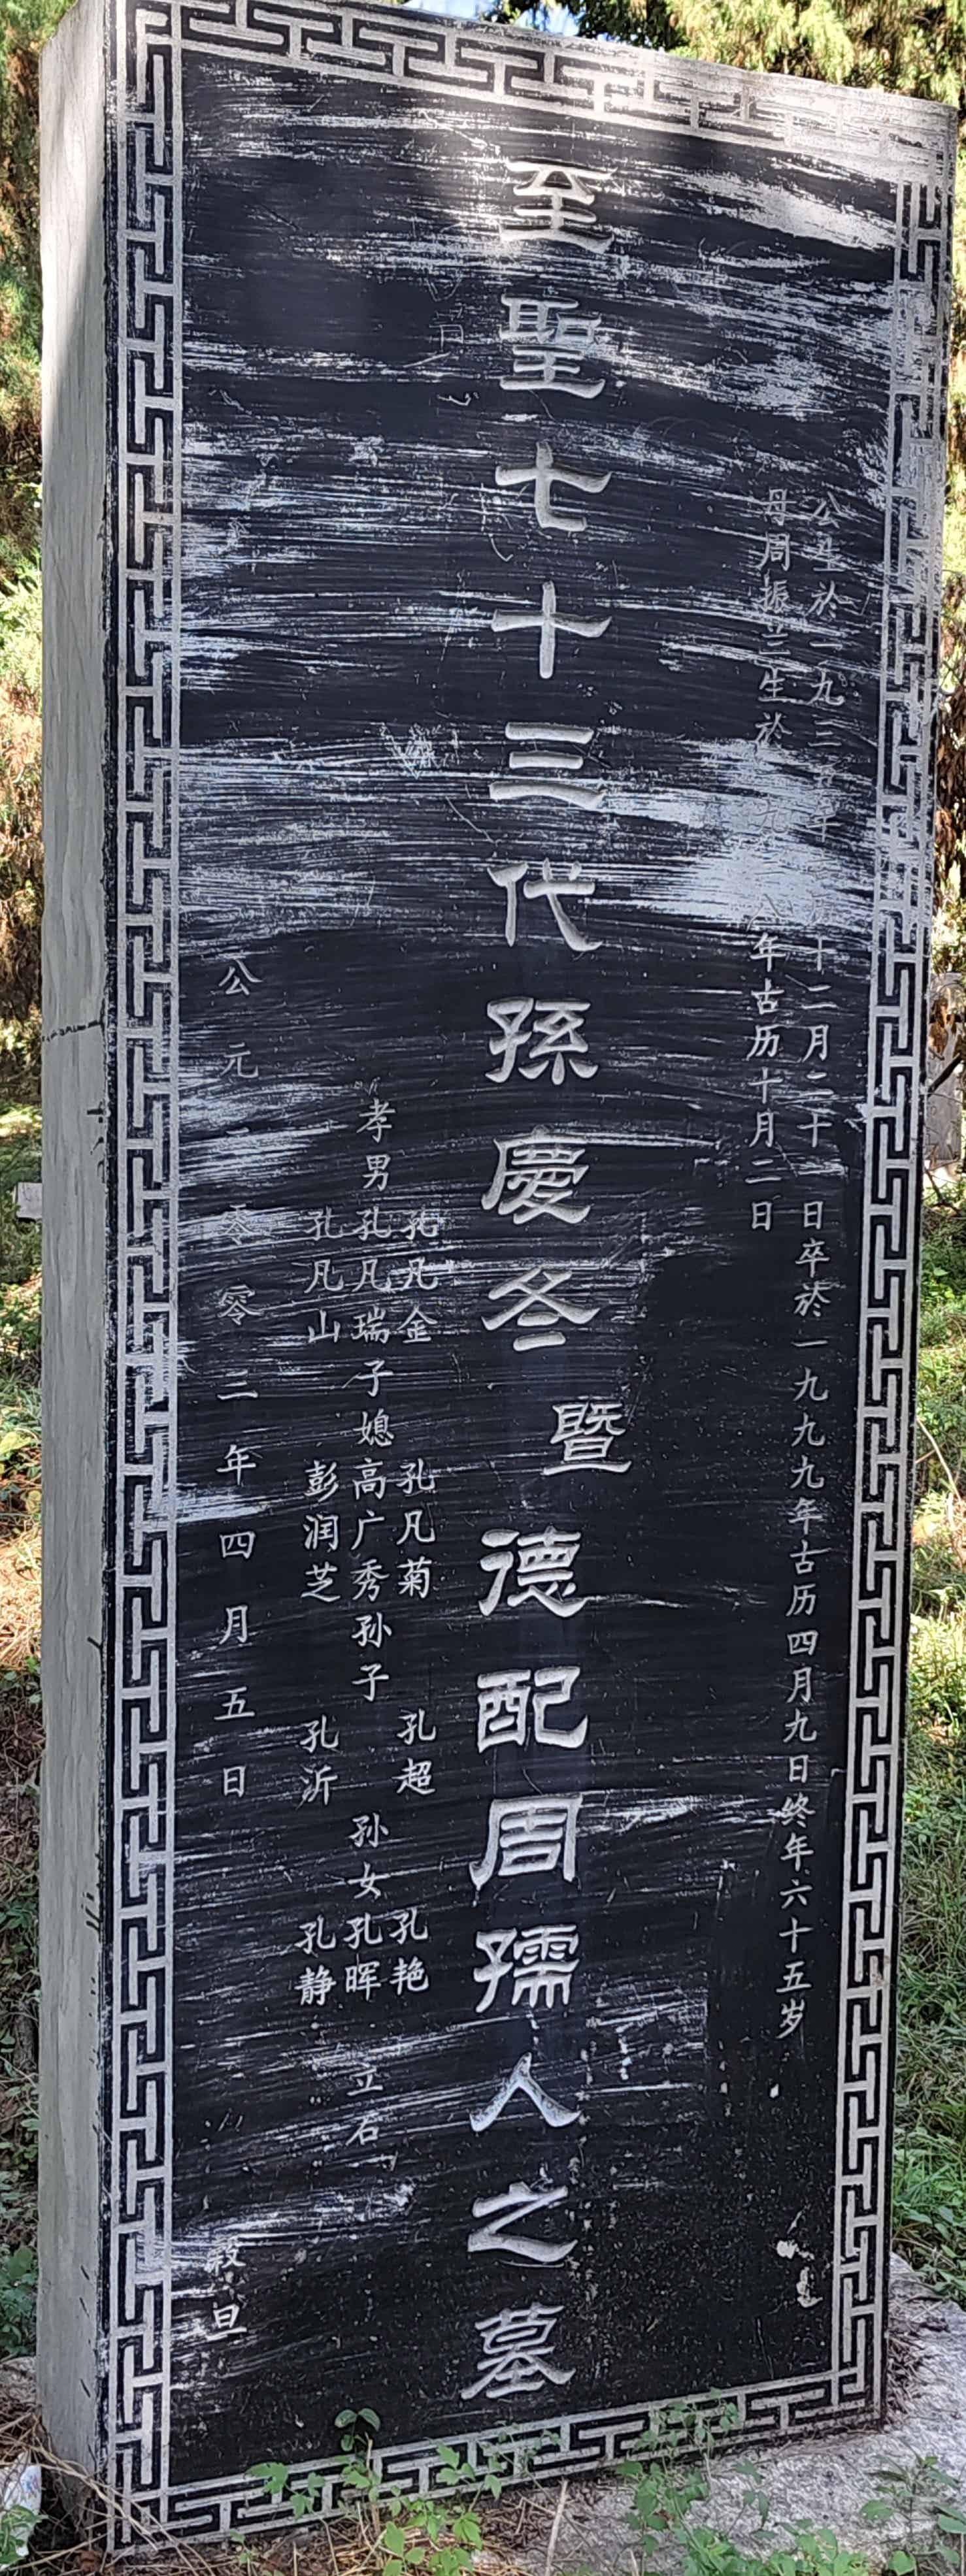 公生於一九三五年 十二月二十一日卒於一九九九年古历四月九日终年六十五岁
母周振兰生於一九 八年古历十月二日
至聖七十三代孫慶冬暨德配周孺人之墓
孔凡金 孔凡菊 孔超 孔艳
孝男孔凡瑞子媳高广秀孙子 孙女孔晖 立石
孔凡山 彭润芝 孔沂 孔静
公元二零零二年四月五日 榖旦